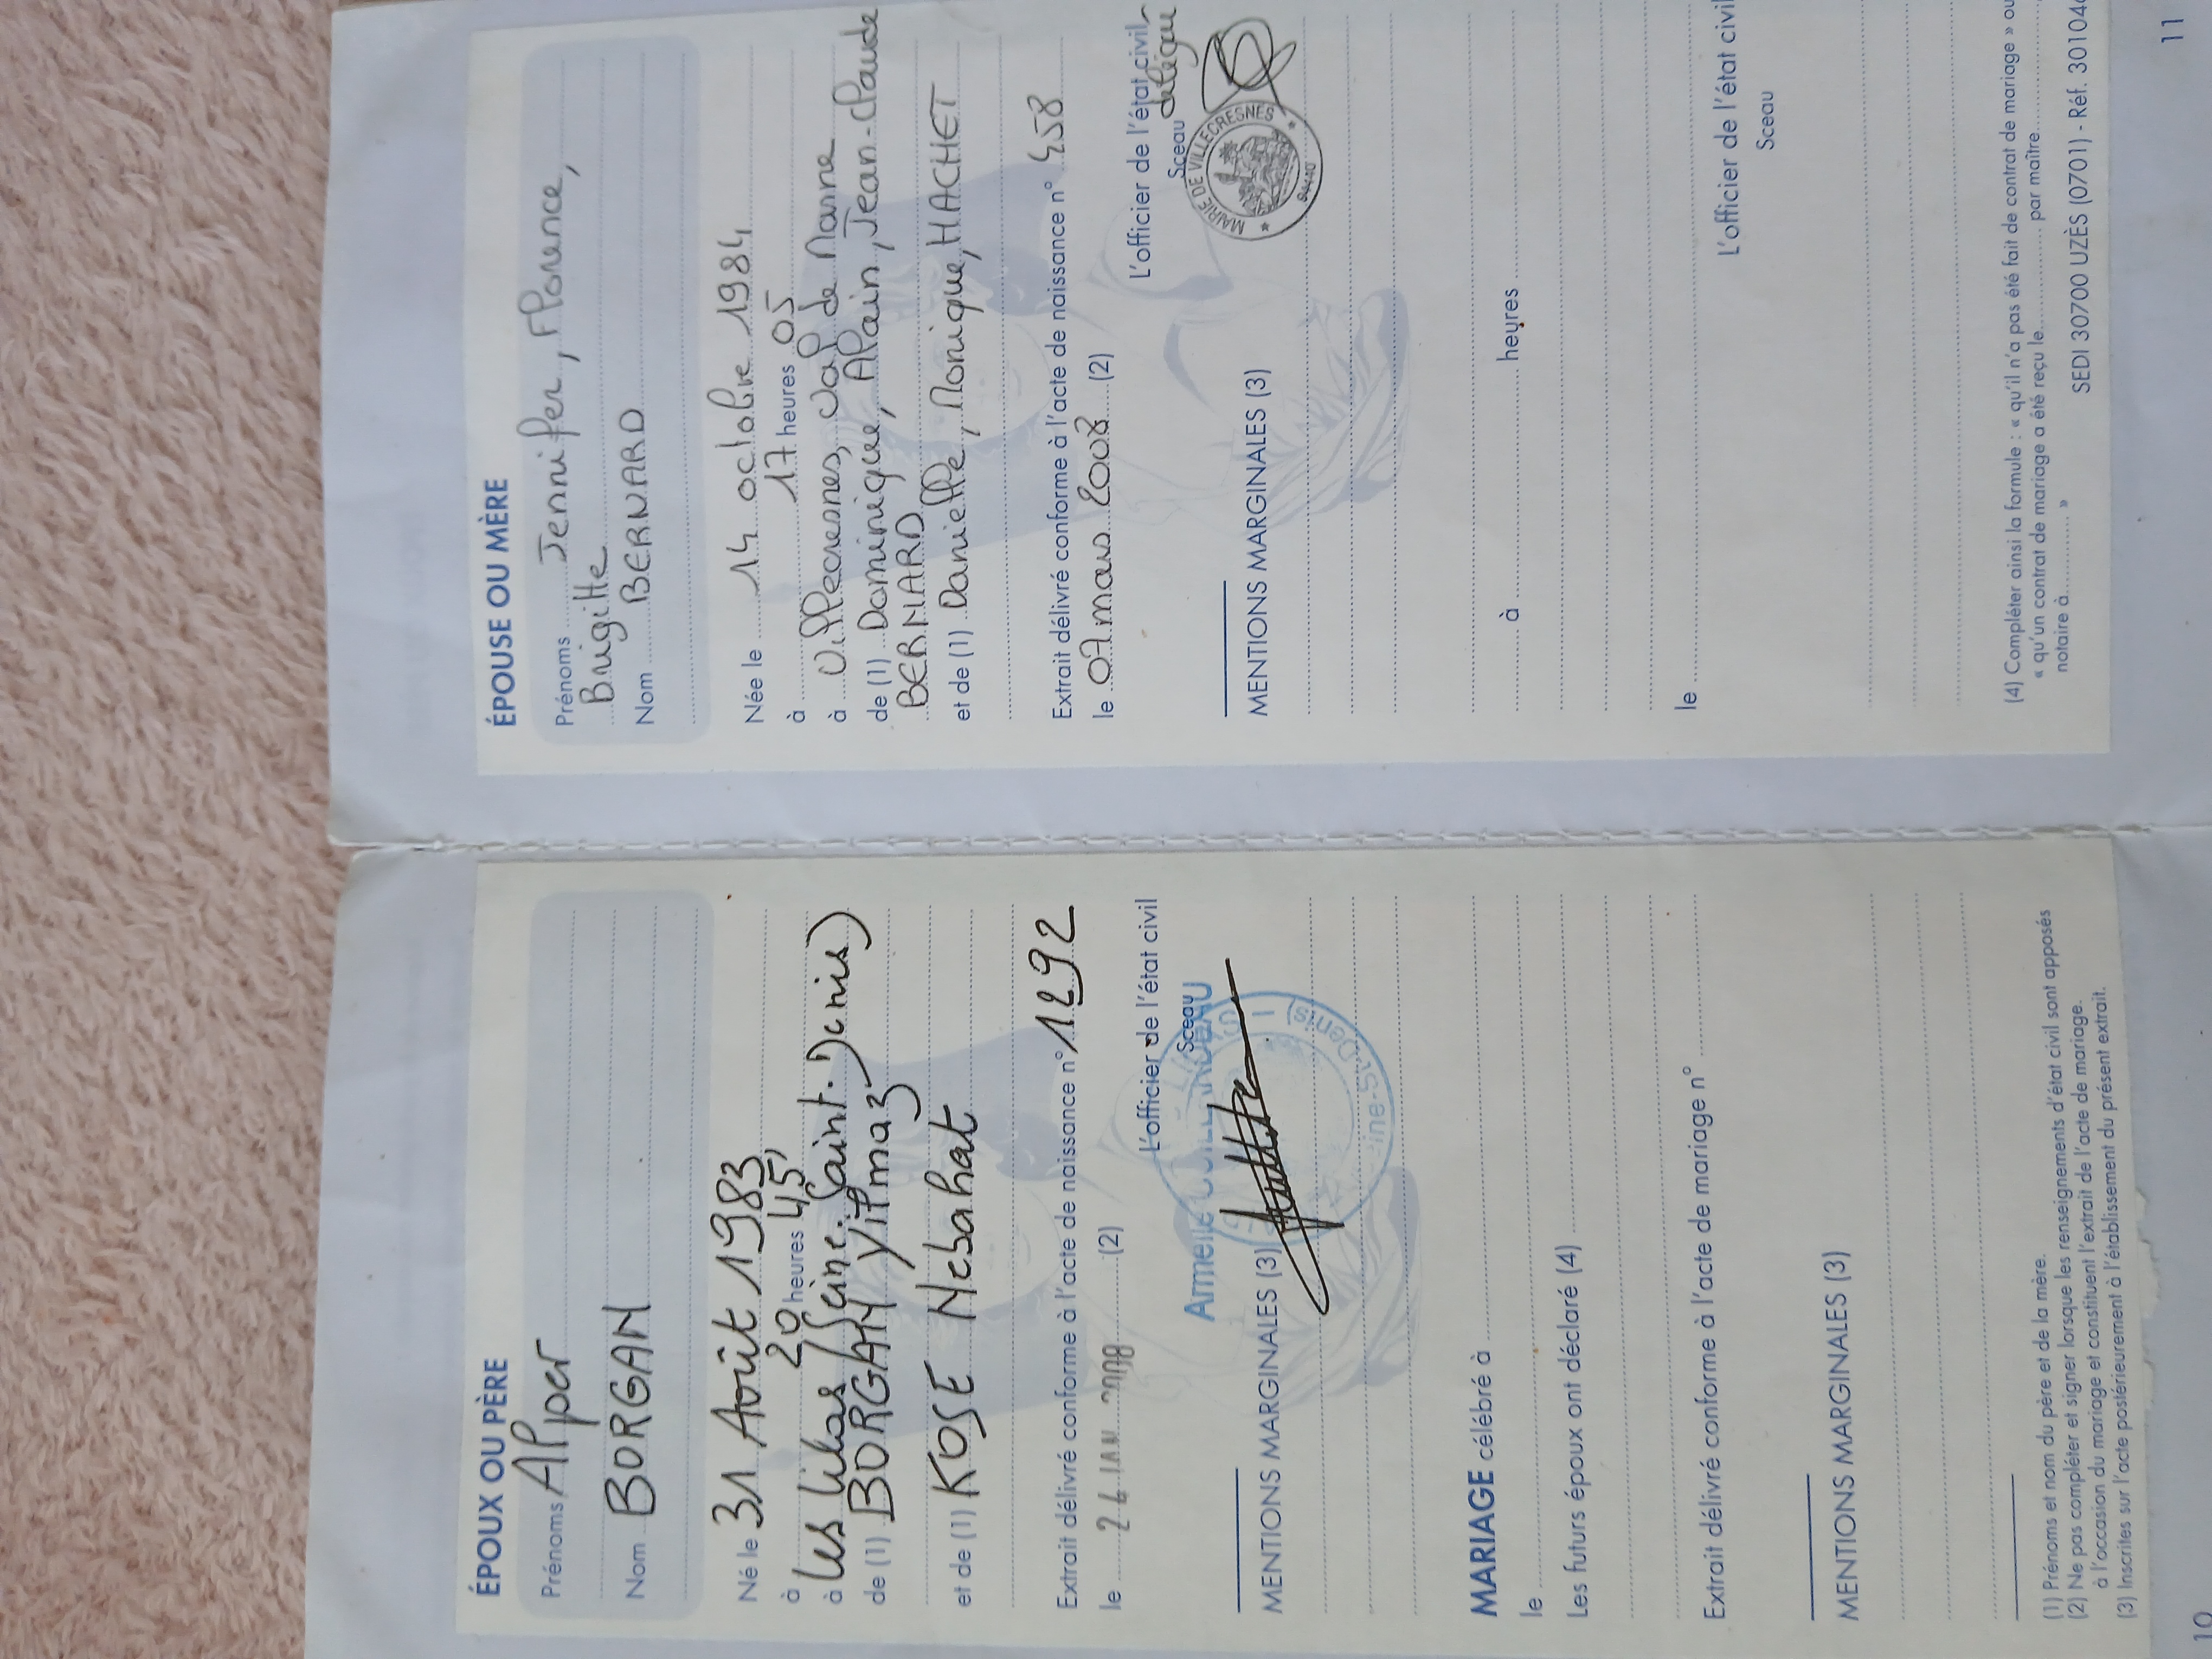 ÉPOUX OU PÈRE
Prénoms Alper
Nom BORGAN
Né le 31 Août 1983
à 20 heures 45,
à Les Lilas (Seine-Saint-Denis)
de (1) BORGAN Yilmaz
et de (1) KOSE Nebahat
Extrait délivré conforme à l'acte de naissance n° 1292
le 24 JAN 2008 (2)
L'officier de l'état civil
Sceau
Armelle
ine-St-Denis
MENTIONS MARGINALES (3)
MARIAGE célébré à
le
Les futurs époux ont déclaré (4)
Extrait délivré conforme à l'acte de mariage n°
MENTIONS MARGINALES (3)
(1) Prénoms et nom du père et de la mère.
(2) Ne pas compléter et signer lorsque les renseignements d'état civil sont apposés
à l'occasion du mariage et constituent l'extrait de l'acte de mariage.
(3) Inscrites sur l'acte postérieurement à l'établissement du présent extrait.
10
ÉPOUSE OU MÈRE
Prénoms Jennifer, Florence,
Brigitte
Nom BERNARD
Née le 14 octobre 1984
à 17 heures 05
à Villecresnes, Val de Marne
de (1) Dominique, Alain, Jean-Claude
BERNARD
et de (1) Danielle, Monique, HACHET
Extrait délivré conforme à l'acte de naissance n° 458
le 07 mars 2008 (2)
L'officier de l'état civil
délégué
Sceau
MAIRIE DE VILLECRESNES
94440
MENTIONS MARGINALES (3)
à heures
le
L'officier de l'état civil
Sceau
(4) Compléter ainsi la formule : « qu'il n'a pas été fait de contrat de mariage » ou
« qu'un contrat de mariage a été reçu le par maître
notaire à »
SEDI 30700 UZÈS (0701) - Réf. 301046
11